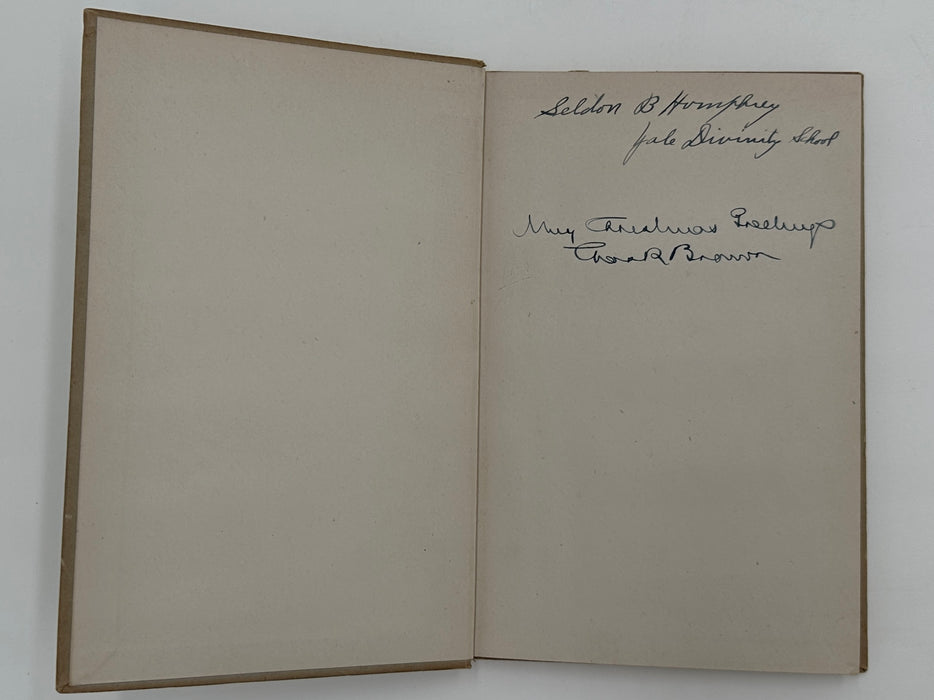 Seldon B Humphrey
Yale Divinity School
Christmas Greetings
Brown